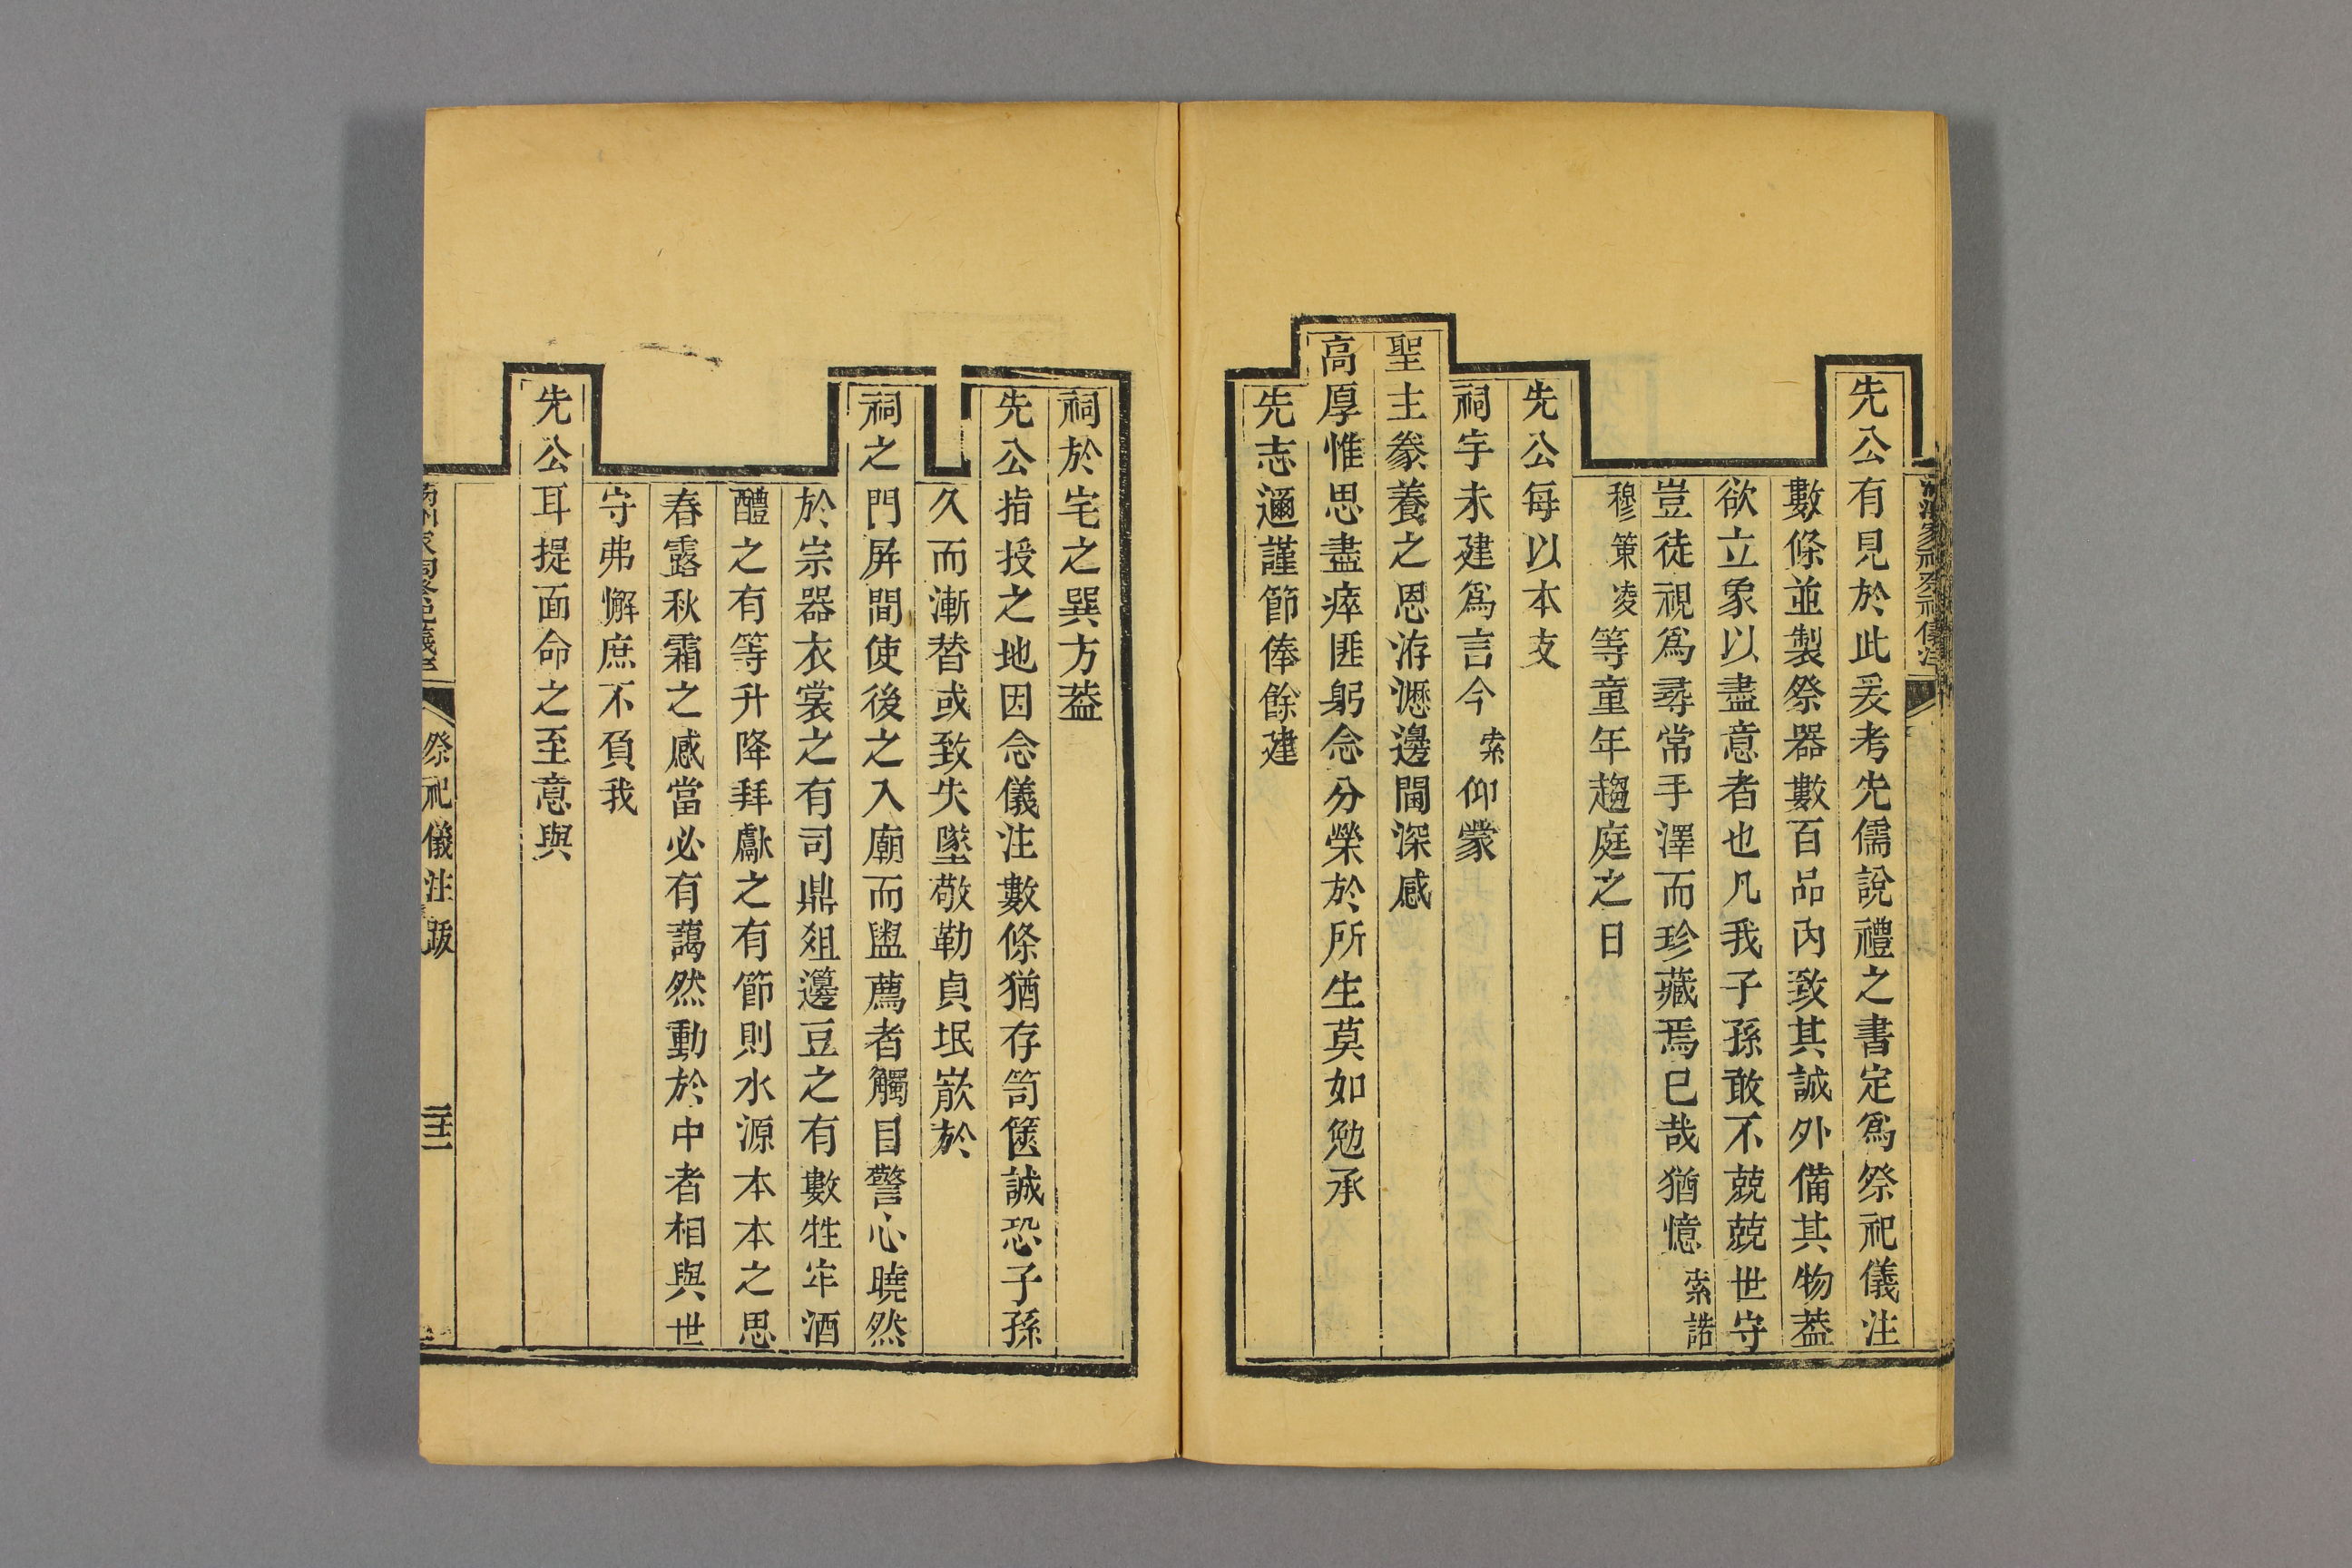 先公有見於此爰考先儒說禮之書定爲祭祀儀注
數條並製祭器數百品內致其誠外備其物葢
欲立象以盡意者也凡我子孫敢不兢兢世守
豈徒視爲尋常手澤而珍藏焉已哉猶憶索諾
穆策凌等童年趨庭之日
先公每以本支
祠宇未建爲言今索仰蒙
聖主豢養之恩洊懋邊閫深感
高厚惟思盡瘁匪躬念分榮於所生莫如勉承
先志邇謹節俸餘建
祠於宅之巽方葢
先公指授之地因念儀注數條猶存笥篋誠恐子孫
久而漸替或致失墜敬勒貞珉嵌於
祠之門屏間使後之入廟而盥薦者觸目警心曉然
於宗器衣裳之有司鼎俎籩豆之有數牲牢酒
醴之有等升降拜獻之有節則水源本本之思
春露秋霜之感當必有藹然動於中者相與世
守弗懈庶不負我
先公耳提面命之至意與
祭祀儀注跋